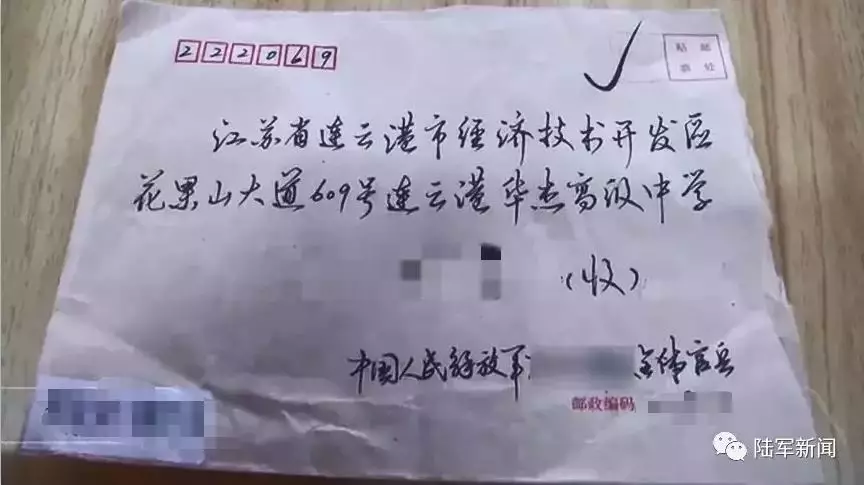 222069
贴邮
票处
江苏省连云港市经济技术开发区
花果山大道609号连云港华杰高级中学
(收)
中国人民解放军 全体官兵
邮政编码
陆军新闻